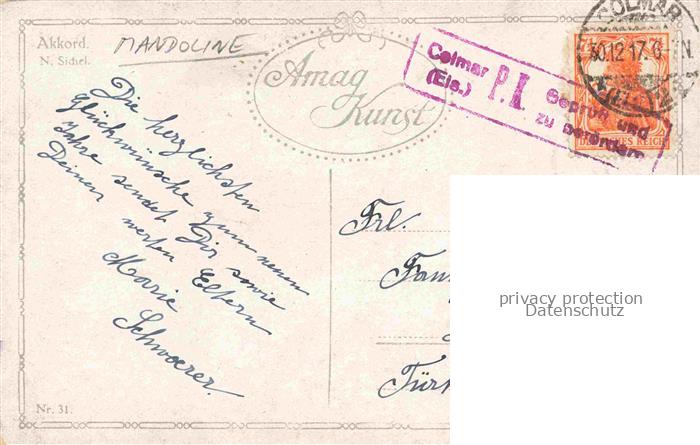 Akkord.
N. Sichel.
MANDOLINE
Amag
Kunst
Colmar P.K. Geprüft und
(Els.) zu befördern
COLMAR
30.12.17.6-7N.
(ELS.)
DEUTSCHES REICH
Die herzlichsten
Glückwünsche zum neuen
Jahre sendet Dir sowie
Deinen werten Eltern
Marie
Schwoerer.
Frl.
Fan
Türk
Nr. 31.
privacy protection
Datenschutz